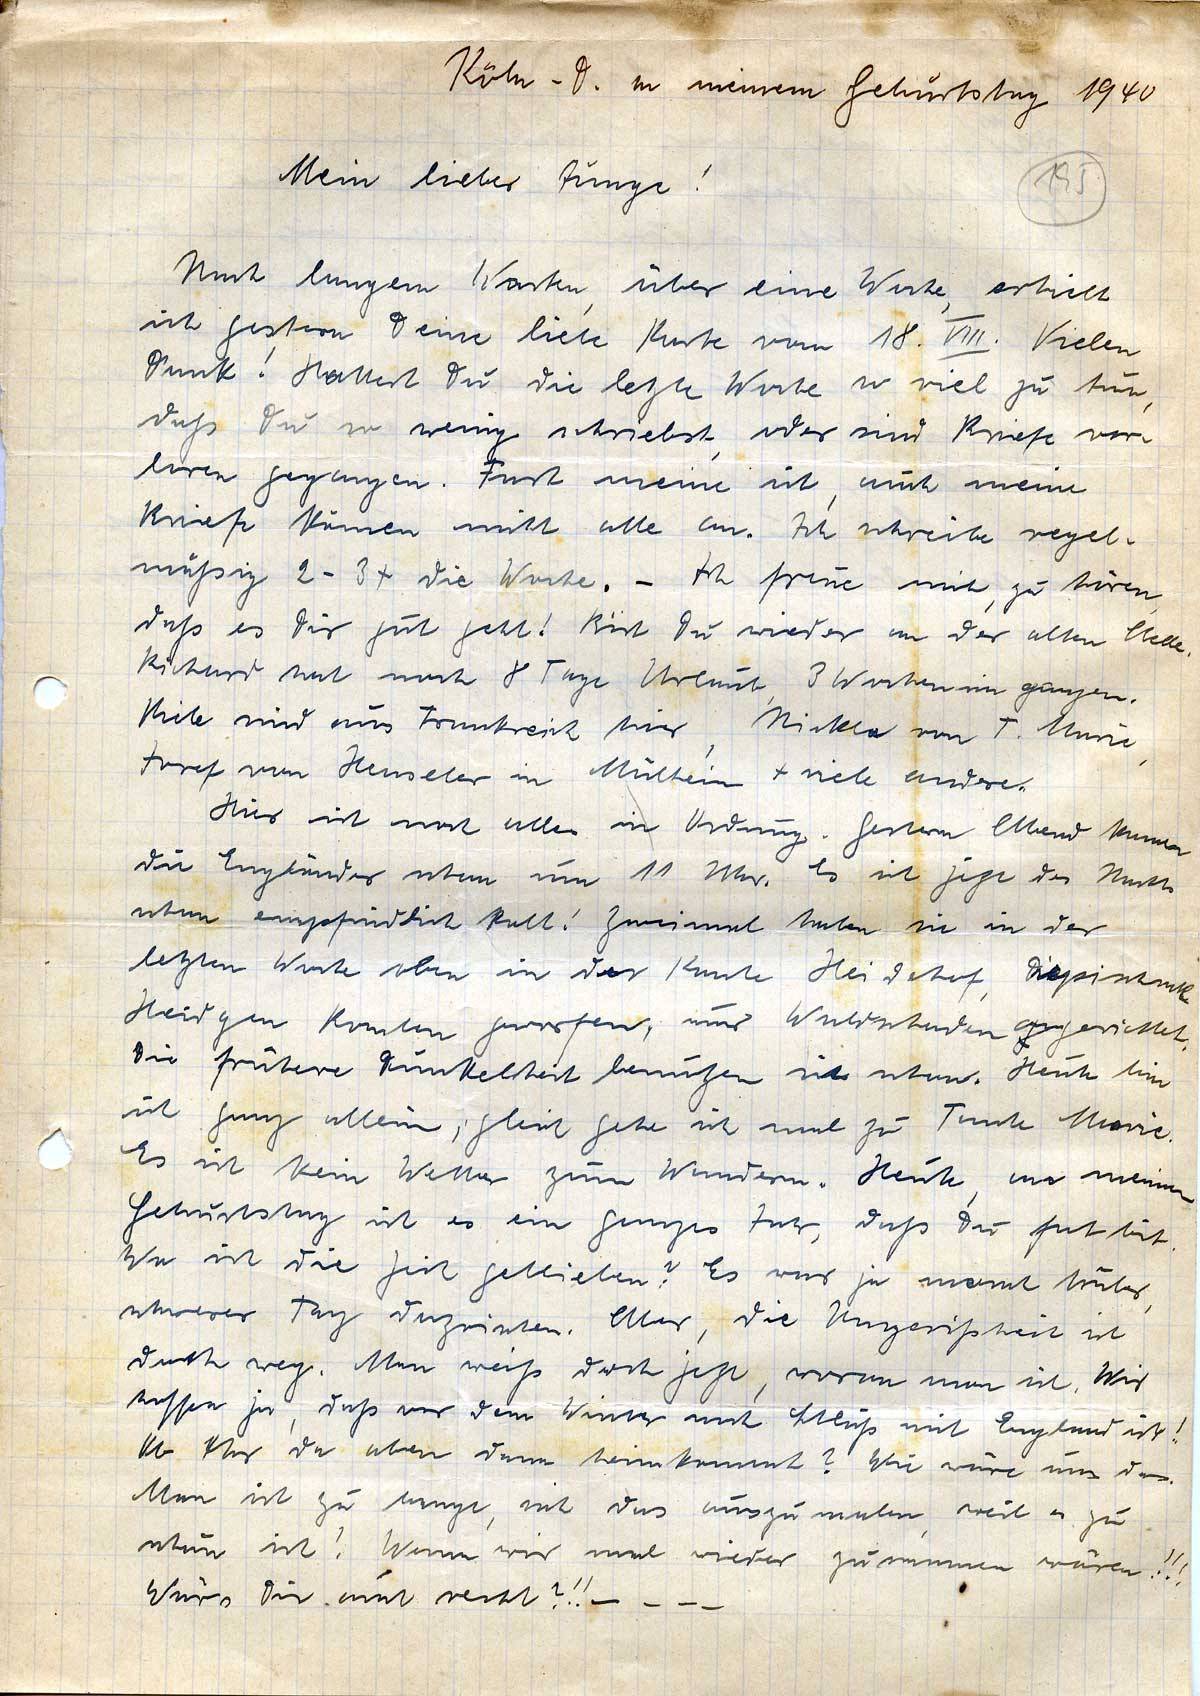 Köln - D. an meinem Geburtstag 1940
195
Mein lieber Junge!
Nach langem Warten, über eine Woche, erhielt
ich gestern Deine liebe Karte vom 18. VIII. Vielen
Dank! Hattest Du die letzte Woche so viel zu tun,
daß Du so wenig schriebst, oder sind Briefe ver-
loren gegangen. Fast meine ich, auch meine
Briefe kämen nicht alle an. Ich schreibe regel-
mäßig 2 - 3 x die Woche. - Ich freue mich, zu hören,
daß es Dir gut geht! Bist Du wieder an der alten Stelle.
Richard hat noch 8 Tage Urlaub, 3 Wochen im ganzen.
Viele sind aus Frankreich hier, von T. Marie,
Josef von Henseler in Mülheim + viele andere.
Hier ist noch alles in Ordnung. Gestern Abend kamen
die Engländer schon um 11 Uhr. Es ist jetzt des Nachts
schon empfindlich kalt! Zweimal haben sie in der
letzten Woche oben in der Kante Heidehof,
Heidgen Bomben geworfen, nur Waldschaden angerichtet.
Die frühere Dunkelheit benutzen sie schon. Heute bin
ich ganz allein, gleich gehe ich mal zu Tante Marie.
Es ist kein Wetter zum Wandern. Heute, an meinem
Geburtstag ist es ein ganzes Jahr, daß Du fort bist.
Wo ist die Zeit geblieben? Es war ja manch trüber,
schwerer Tag dazwischen. Aber, die Ungewißheit ist
doch weg. Man weiß doch jetzt, woran man ist. Wir
hoffen ja, daß vor dem Winter noch Schluß mit England ist!
Ob Ihr da oben dann heimkommt? Wie wäre uns das.
Man ist zu bange, sich das auszumalen, weil es zu
schön ist! Wenn wir mal wieder zusammen wären!!!
Wärs Dir auch recht?!! - - - -